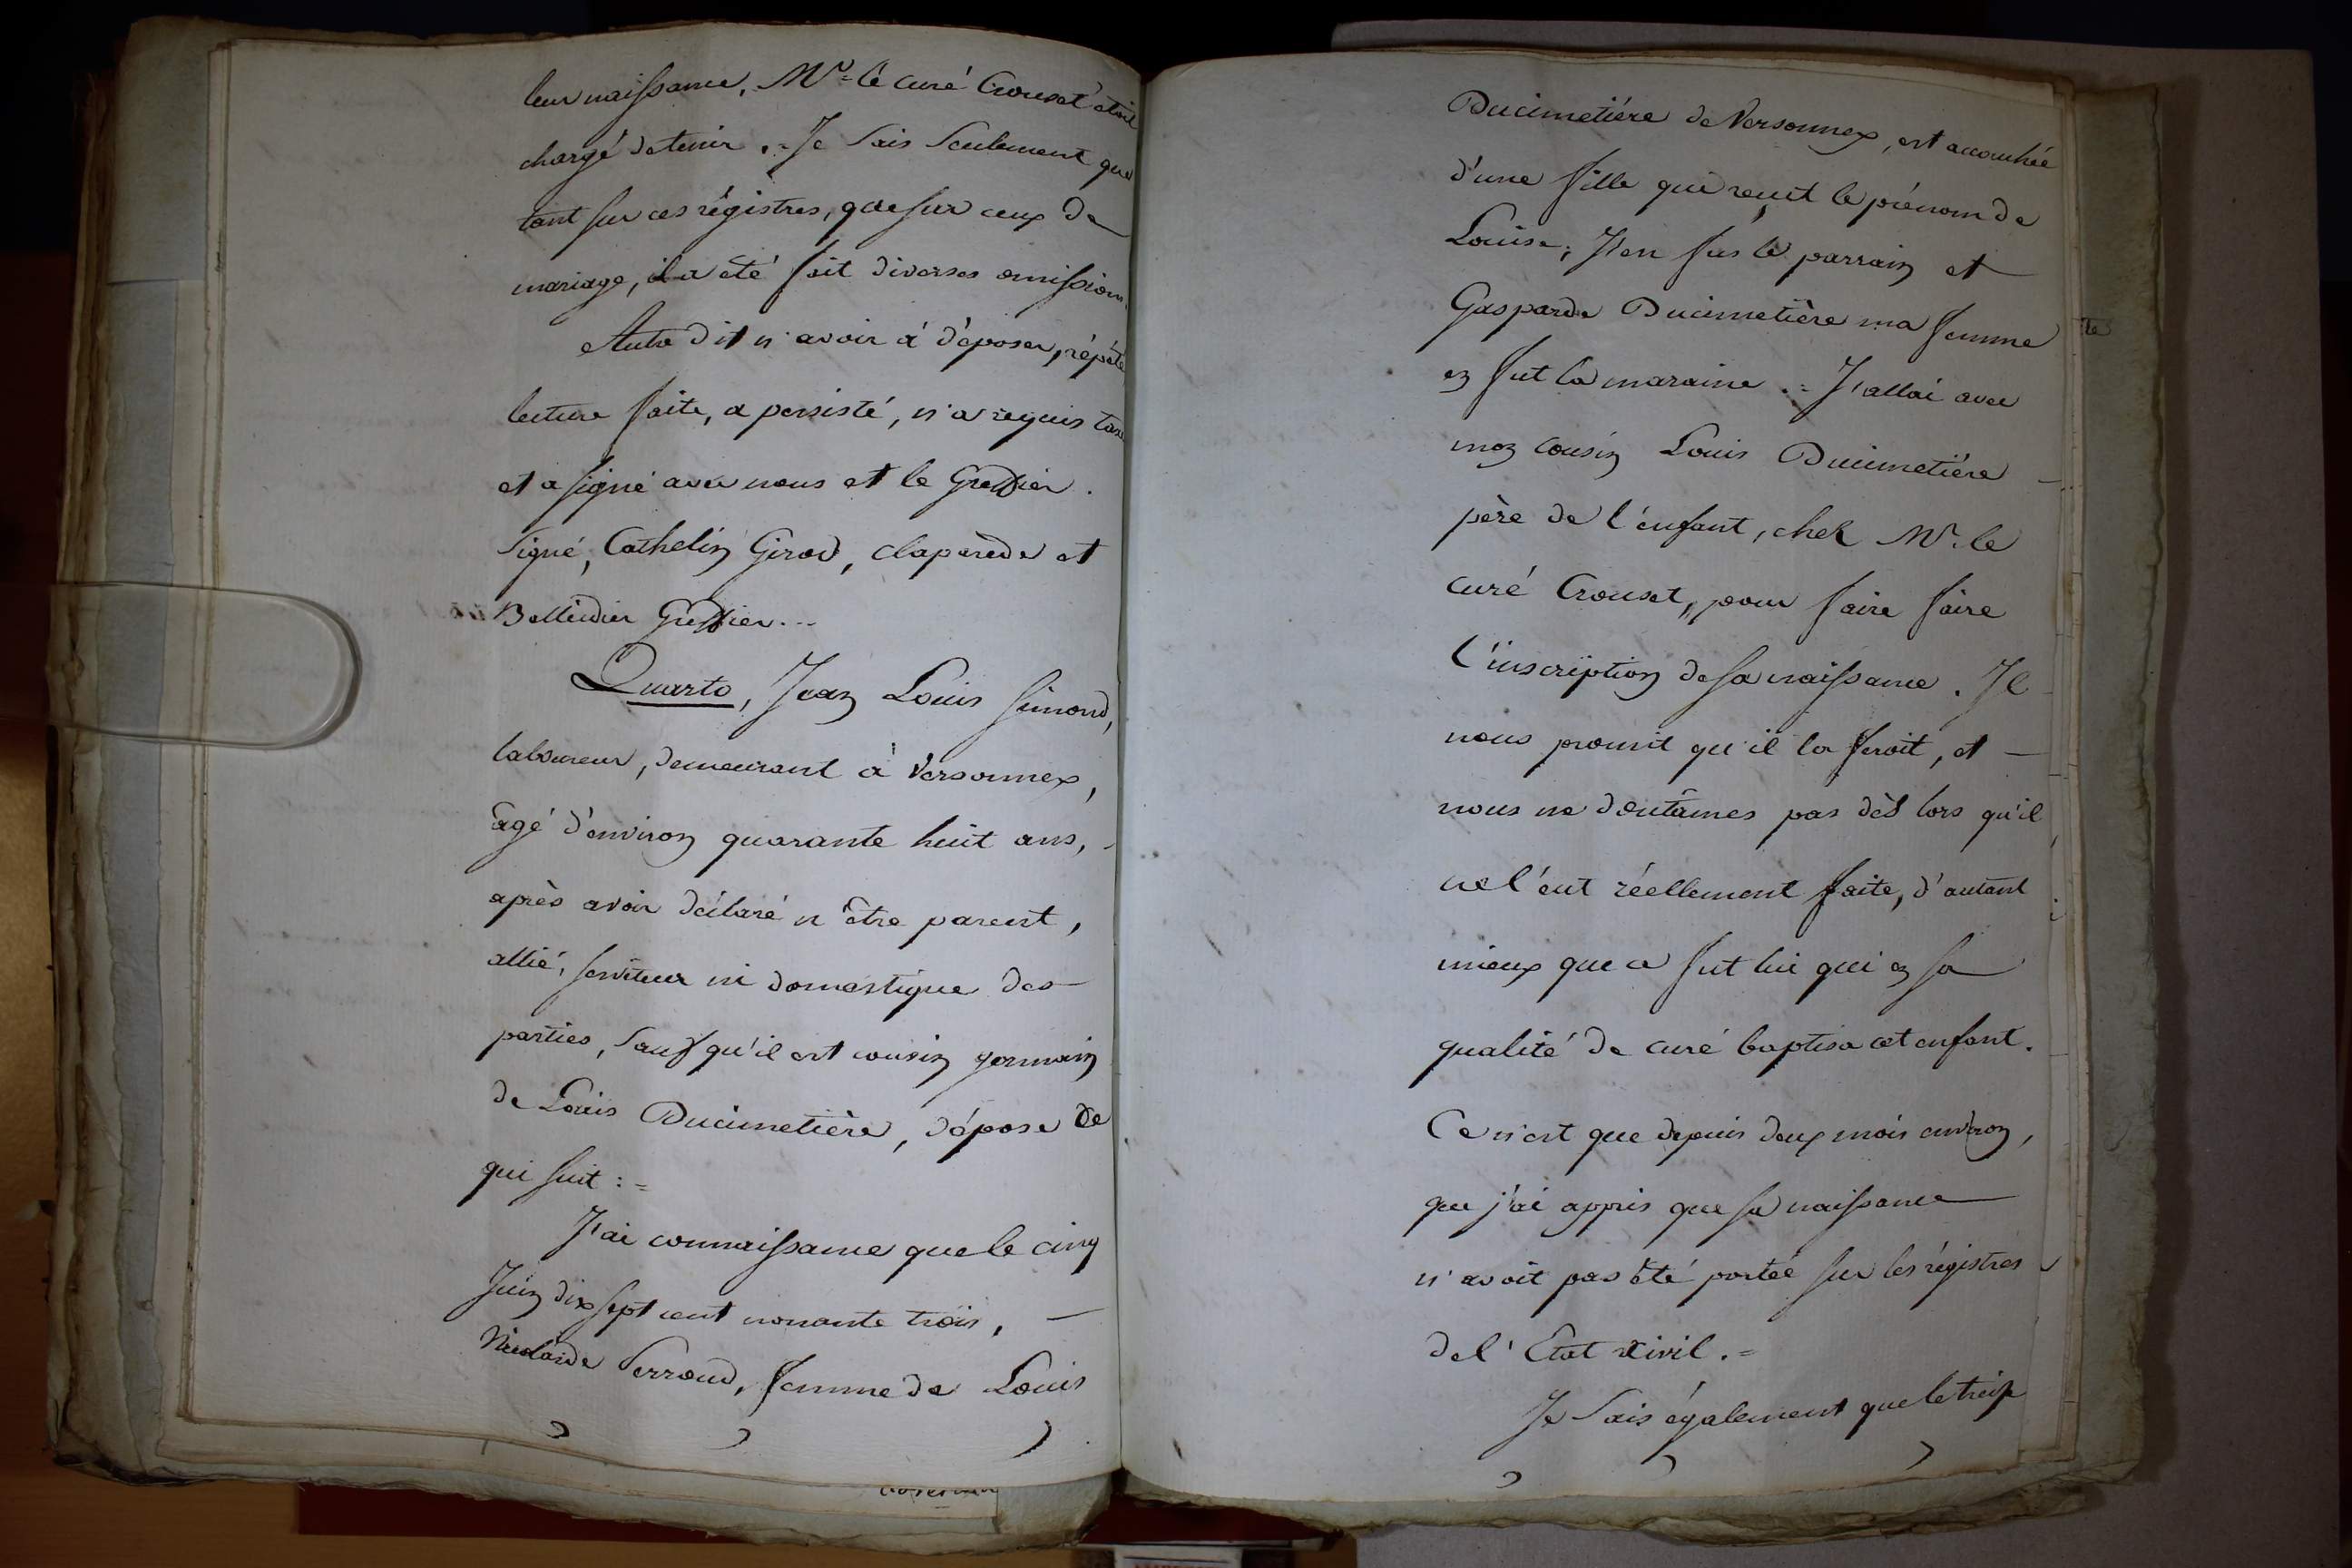 leur naissance, Mr. le curé Crouset étoit
chargé de tenir. = Je sais seulement que
tant sur ces régistres, que sur ceux de
mariage, il a été fait diverses omissions.
Autre dit n'avoir à déposer, répété
lecture faite, a persisté, n'a requis taxe
et a signé avec nous et le Greffier.
Signé, Cathelin Girod, Claparède et
Bellindier Greffier...
Quarto, Jean Louis Simond,
laboureur, demeurant à Versonnex,
âgé d'environ quarante huit ans,
après avoir déclaré n'être parent,
allié, serviteur ni domestique des
parties, sauf qu'il est cousin germain
de Louis Ducimetière, dépose ce
qui suit : =
J'ai connaissance que le cinq
Juin dix sept cent nonante trois,
Nicolarde Perroud, femme de Louis
Ducimetiére de Versonnex, est accouchée
d'une fille qui reçut le prénom de
Louise; J'en fus le parrain et
Gasparde Ducimetière ma femme
en fut la maraine. = J'allai avec
mon cousin Louis Ducimetiére
père de l'enfant, chez Mr. le
curé Crouset, pour faire faire
l'inscription de sa naissance. Il
nous promit qu'il la feroit, et
nous ne doutâmes pas dès lors qu'il
ne l'eut réellement faite, d'autant
mieux que ce fut lui qui en sa
qualité de curé baptisa cet enfant.
Ce n'est que depuis deux mois environ,
que j'ai appris que sa naissance
n'avoit pas été portée sur les régistres
de l'Etat civil. =
Je sais également que le treize